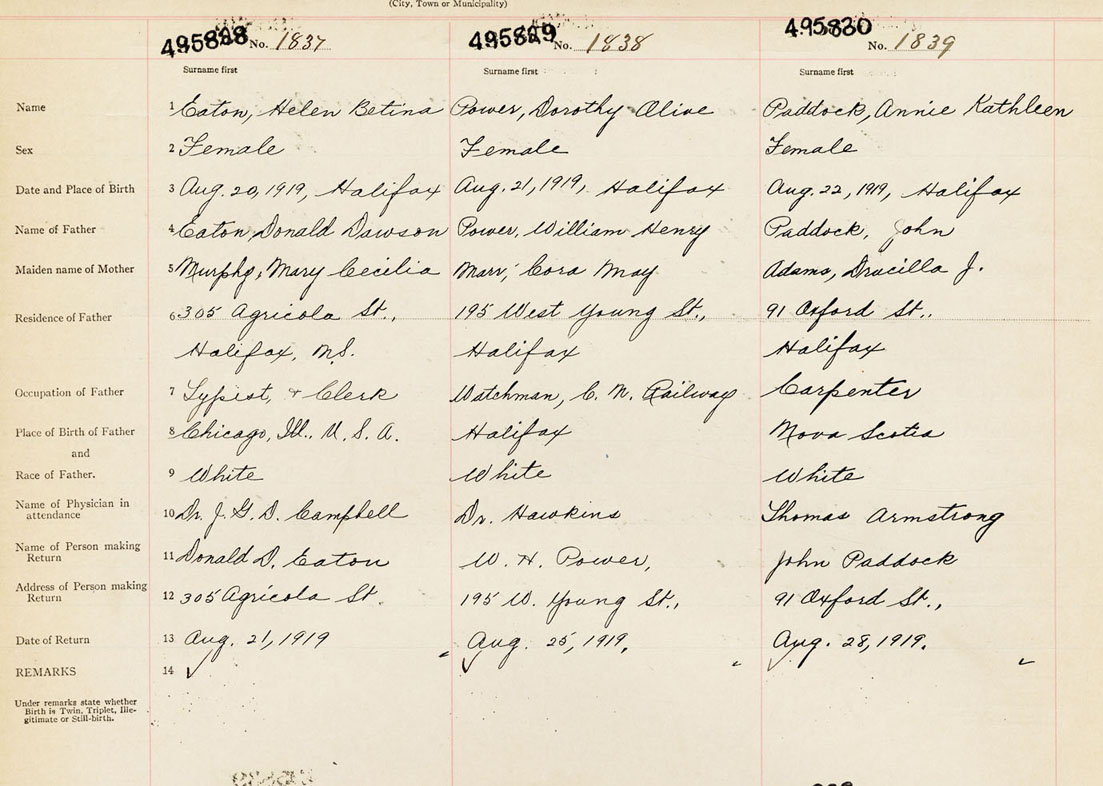 (City, Town or Municipality)
495828 No. 1837 495829 No. 1838 495830 No. 1839
Surname first Surname first Surname first
Name 1 Eaton, Helen Betina Power, Dorothy Olive Paddock, Annie Kathleen
Sex 2 Female Female Female
Date and Place of Birth 3 Aug. 20, 1919, Halifax Aug. 21, 1919, Halifax Aug. 22, 1919, Halifax
Name of Father 4 Eaton, Donald Dawson Power, William Henry Paddock, John
Maiden name of Mother 5 Murphy, Mary Cecilia Marr, Cora May Adams, Drucilla J.
Residence of Father 6 305 Agricola St., 195 West Young St., 91 Oxford St..
Halifax, N.S. Halifax Halifax
Occupation of Father 7 Typist, & Clerk Watchman, C. N. Railway Carpenter
Place of Birth of Father 8 Chicago, Ill., U. S. A. Halifax Nova Scotia
and
Race of Father. 9 White White White
Name of Physician in
attendance 10 Dr. J. G. D. Campbell Dr. Hawkins Thomas Armstrong
Name of Person making
Return 11 Donald D. Eaton W. H. Power, John Paddock
Address of Person making
Return 12 305 Agricola St. 195 W. Young St., 91 Oxford St.,
Date of Return 13 Aug. 21, 1919 Aug. 25, 1919. Aug. 28, 1919.
REMARKS 14
Under remarks state whether
Birth is Twin, Triplet, Ille-
gitimate or Still-birth.